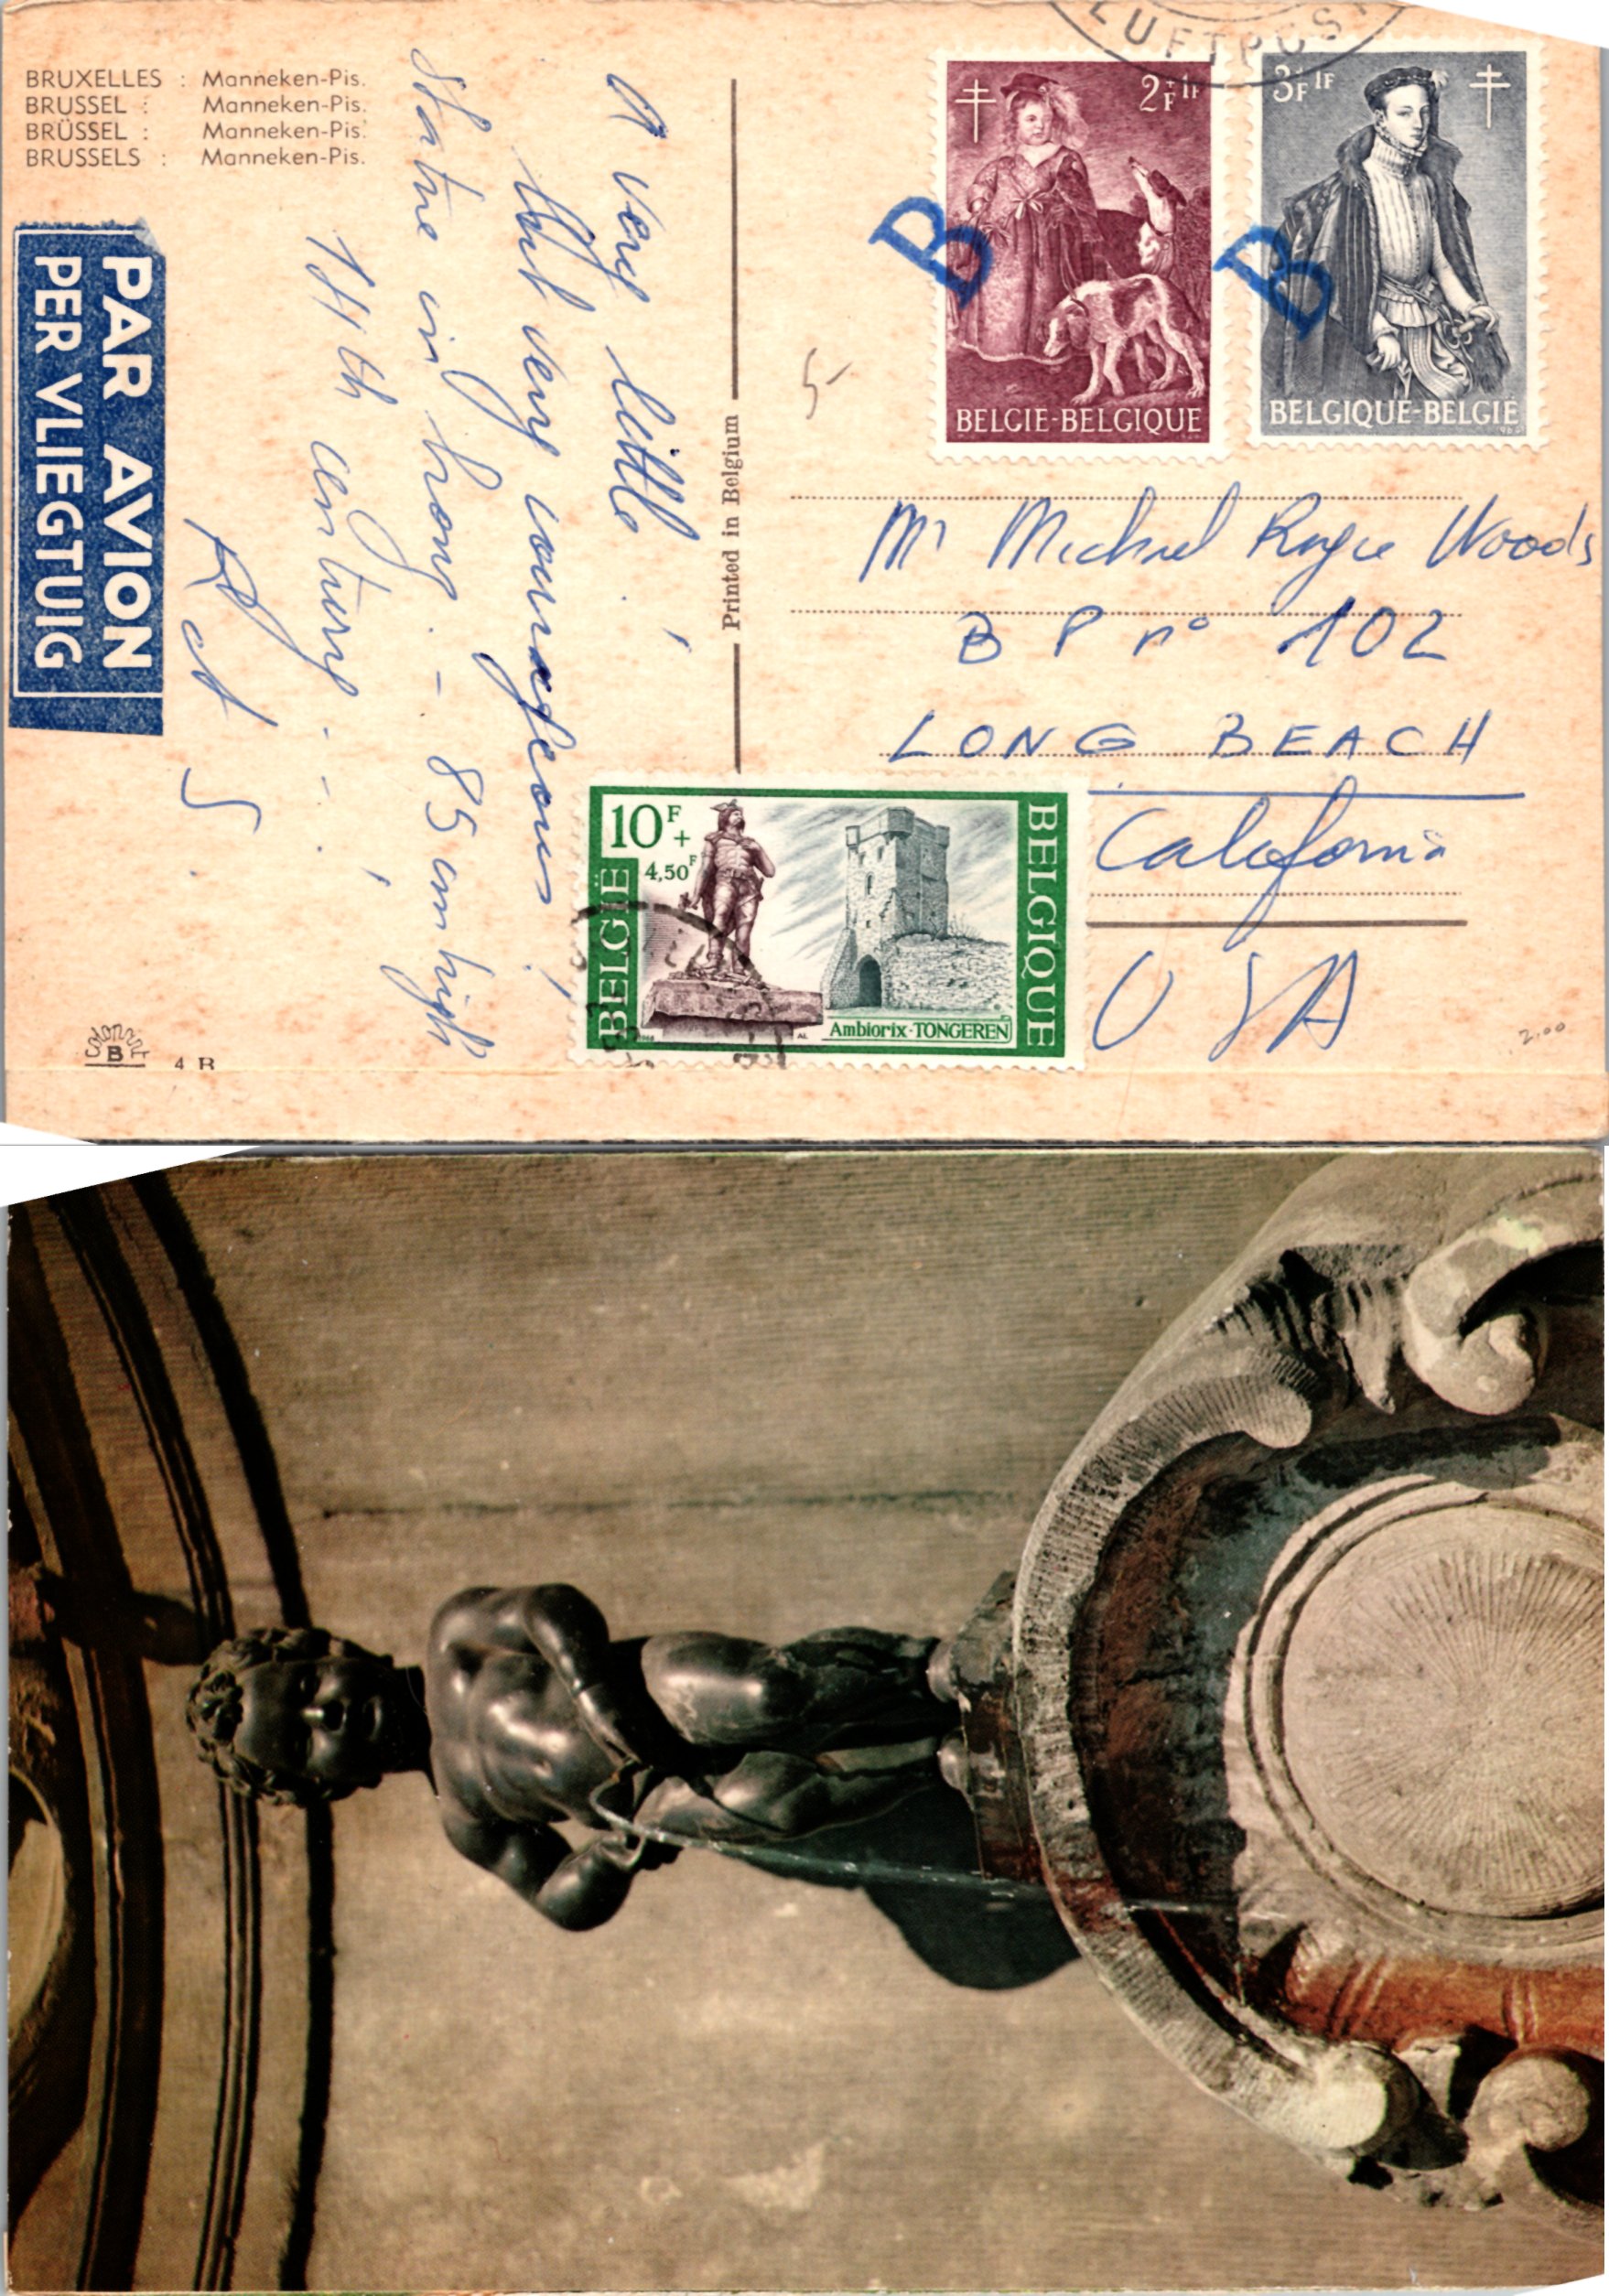 BRUXELLES : Manneken-Pis.
BRUSSEL : Manneken-Pis.
BRÜSSEL : Manneken-Pis.
BRUSSELS : Manneken-Pis.
PAR AVION
PER VLIEGTUIG
A very little !
but very courageous !
Statue in brong. - 85 cm high
14th century - - . !
LUFTPOS
2F+1F
BELGIE-BELGIQUE
3F+1F
BELGIQUE-BELGIE
B
B
5-
Printed in Belgium
Mr Michael Woods
B P n° 102
LONG BEACH
California
USA
10F+
4,50F
BELGIË
BELGIQUE
Ambiorix-TONGEREN
2.00
B
4 B